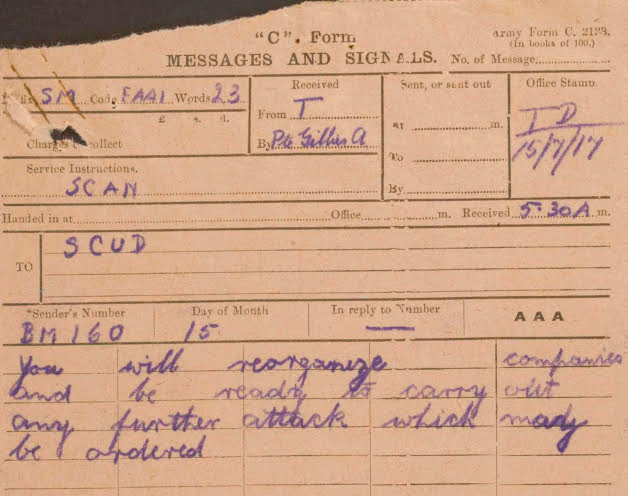 "C". Form
Army Form C. 2123.
(In books of 100.)
MESSAGES AND SIGNALS.
No. of Message
Prefix SM Code EAA1 Words 23
Received
Sent, or sent out
Office Stamp.
£ s. d.
From T
At m.
I D
Charges to collect
By Pte Gillies A
To
15/7/17
Service Instructions.
SCAN
By
Handed in at Office m. Received 5.30A m.
TO SCUD
*Sender's Number
Day of Month
In reply to Number
AAA
BM 160
15
—
You will reorganize companies
and be ready to carry out
any further attack which may
be ordered